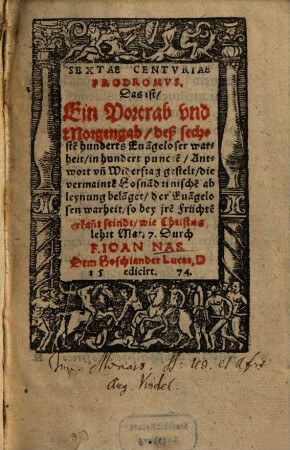 SEXTAE CENTVRIAE
PRODROMVS.
Das ist/
Ein Vortrab vnd
Morgengab/ deß sech-
stē hunderts Euāgeloser war-
heit/ in hundert puncē/ Ant-
wort vñ Widerfrag gestelt/ die
vermaintē Hosnādrinische ab
leynung belāget/ der Euāgelo
sen warheit/ so bey jrē Früchtē
erkāñt seindt/ wie Christus
lehrt Mat. 7. Durch
F. IOAN NAS.
Dem Boschiander Lucas, D
15 edicirt. 74.
Aug. Vindel.